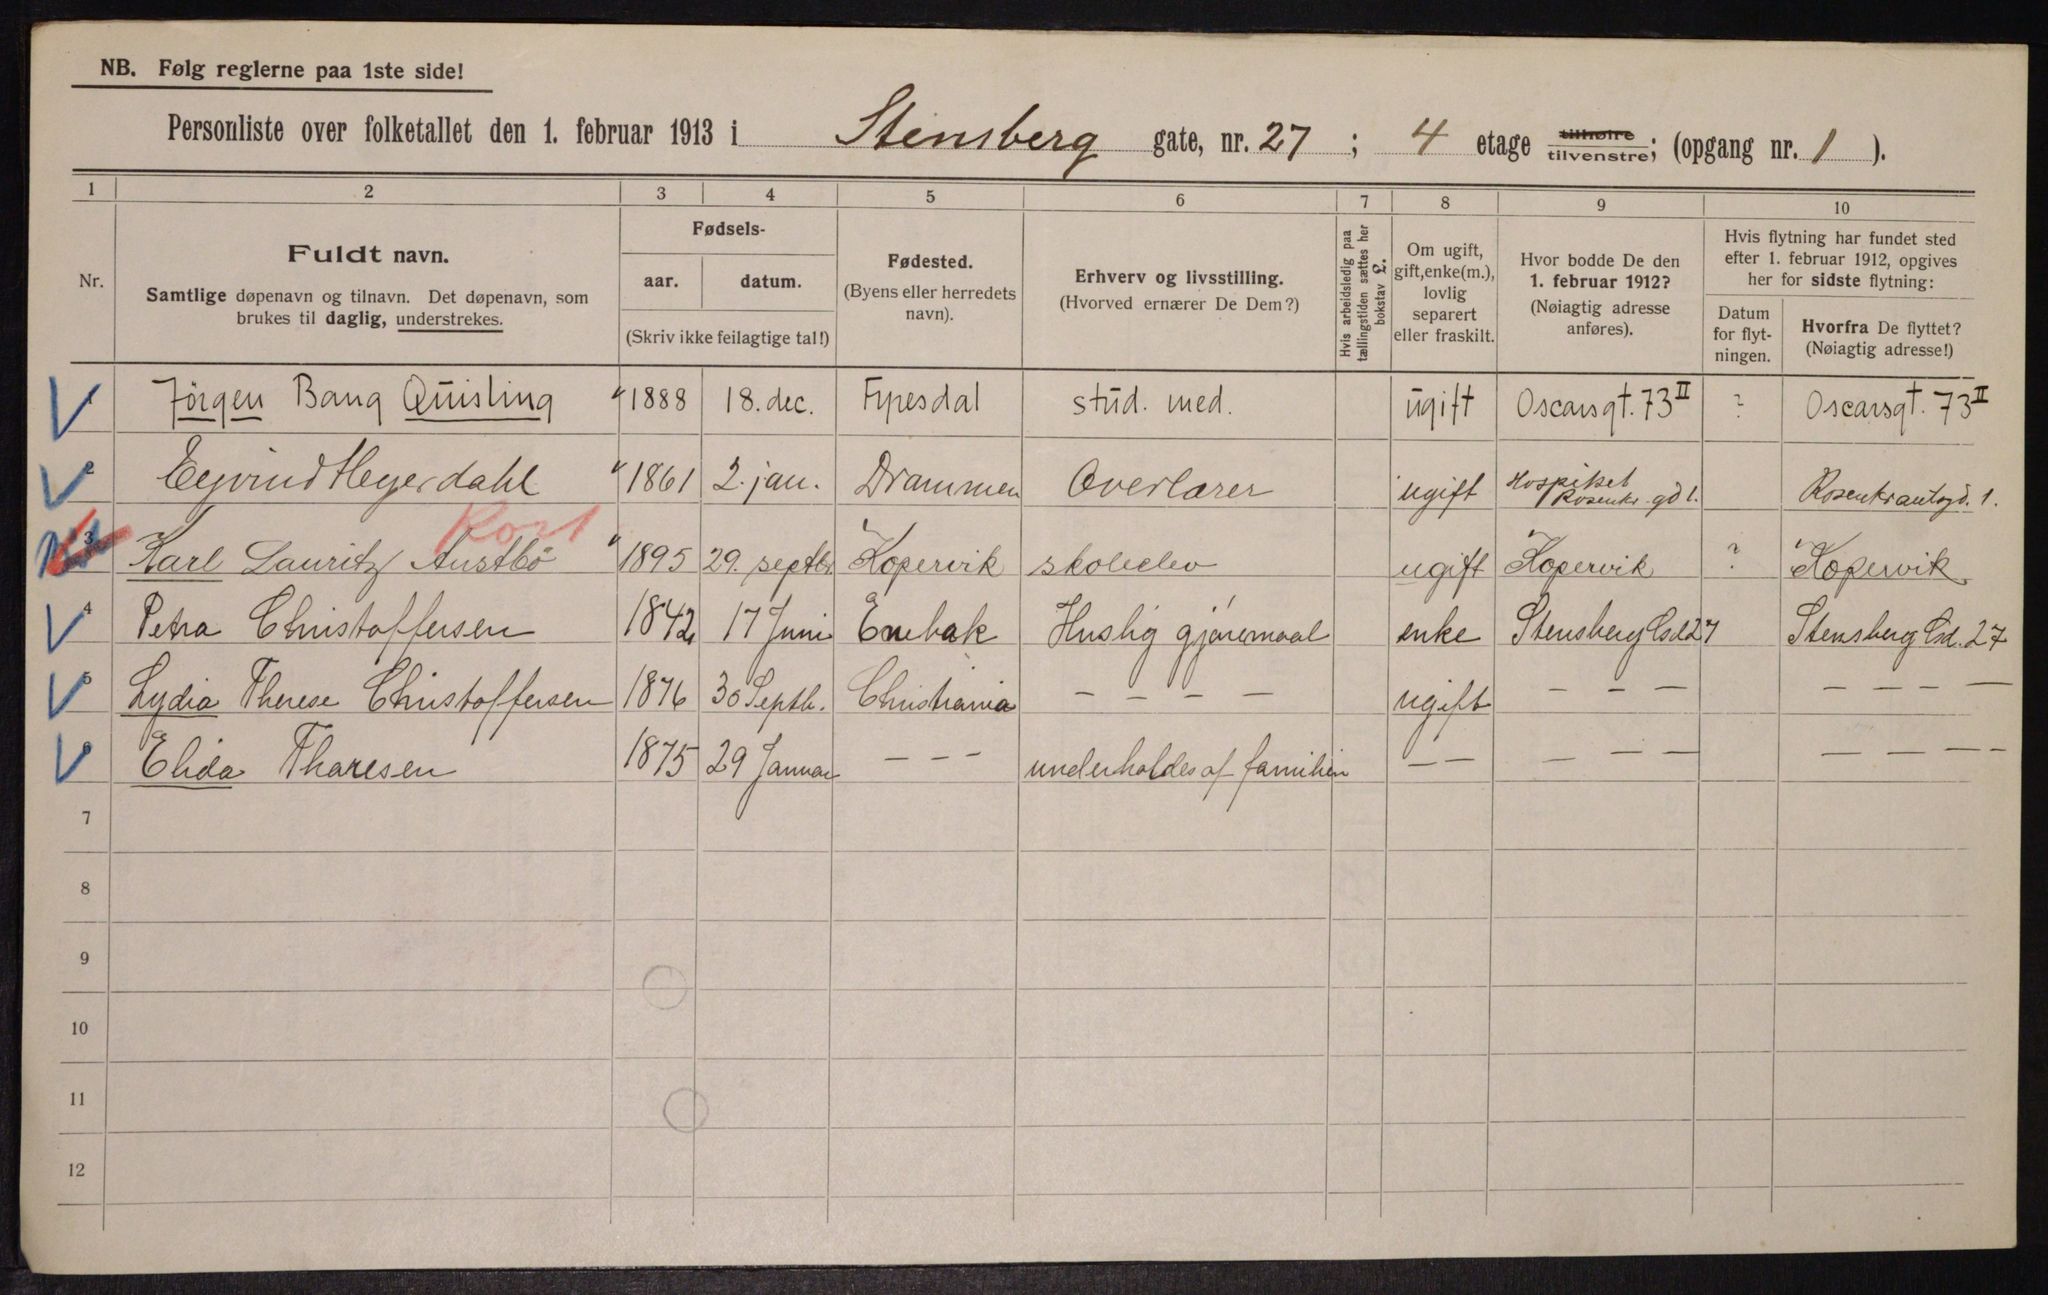 NB. Følg reglerne paa 1ste side!
Personliste over folketallet den 1. februar 1913 i Stensberg gate, nr. 27 ; 4 etage tilhøire tilvenstre; (opgang nr. 1 ).
1 2 3 4 5 6 7 8 9 10
Nr.
Fuldt navn.
Samtlige døpenavn og tilnavn. Det døpenavn, som
brukes til daglig, understrekes.
Fødsels-
aar. datum.
(Skriv ikke feilagtige tal!)
Fødested.
(Byens eller herredets
navn).
Erhverv og livsstilling.
(Hvorved ernærer De Dem?)
Hvis arbeidsledig paa
tællingstiden sættes her
bokstav L.
Om ugift,
gift, enke(m.),
lovlig
separert
eller fraskilt.
Hvor bodde De den
1. februar 1912?
(Nøiagtig adresse
anføres).
Hvis flytning har fundet sted
efter 1. februar 1912, opgives
her for sidste flytning:
Datum
for flyt-
ningen.
Hvorfra De flyttet?
(Nøiagtig adresse!)
1 Jörgen Bang Quisling 1888 18. dec. Fyresdal stud. med. ugift Oscarsgt. 73 II ? Oscarsgt. 73 II
2 Eyvind Heyerdahl 1861 2. jan. Drammen Overlærer ugift Hospitset Rosenkr. gd 1. Rosenkrantzgd. 1.
Kort
3 Karl Lauritz Austbö 1895 29. septbr. Kopervik skoleelev ugift Kopervik ? Kopervik
4 Petra Christoffersen 1842 17 Juni Enebak Huslig gjöremaal enke Stensberg Gd 27 Stensberg Gd. 27
5 Lydia Therese Christoffersen 1876 30 Septb. Christiania — — — — ugift — — — — — — —
6 Elida Thoresen 1875 29 Januar — — — underholdes af familien — — — — — — — — —
7
8
9
10
11
12